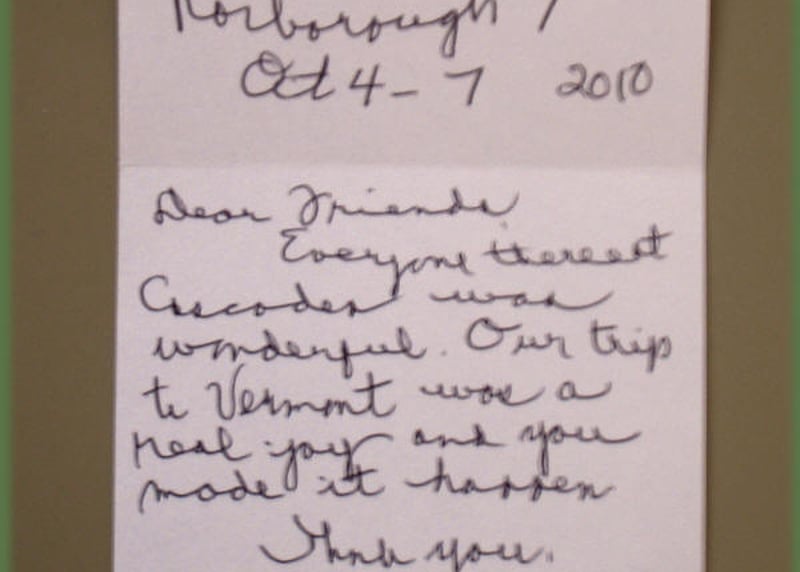 Oct 4 - 7 2010
Dear Friends
Everyone there at
Cascades was
wonderful. Our trip
to Vermont was a
real joy and you
made it happen
Thank you.